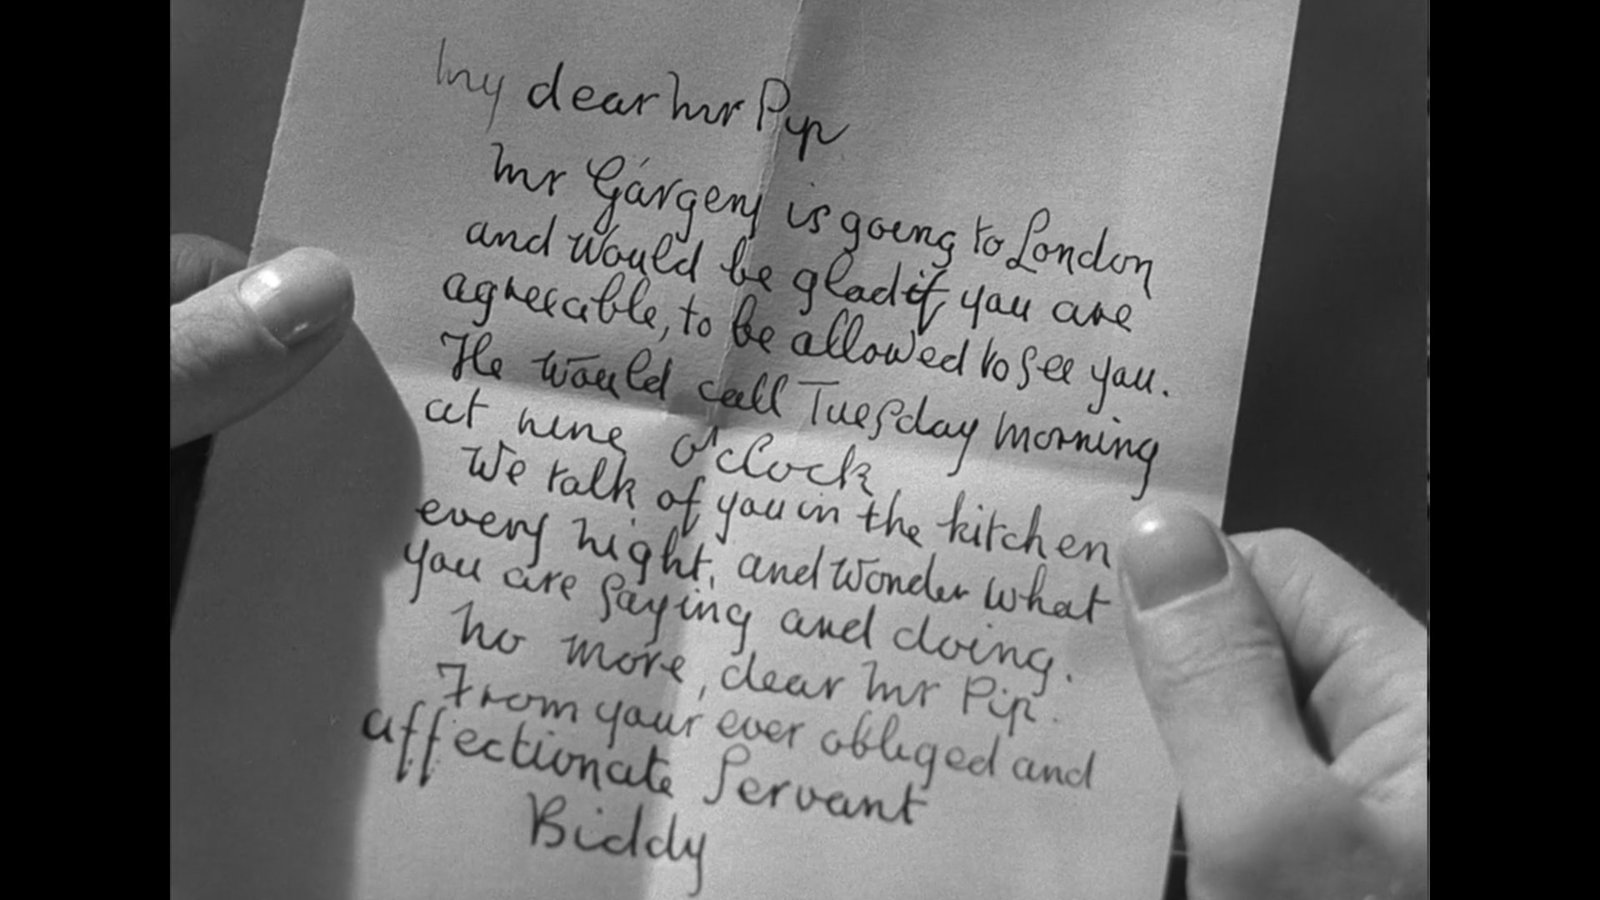 My dear Mr Pip
Mr Gargery is going to London
and would be glad if you are
agreeable, to be allowed to see you.
He would call Tuesday morning
at nine o'clock
We talk of you in the kitchen
every night, and wonder what
you are saying and doing.
No more, dear Mr Pip.
From your ever obliged and
affectionate servant
Biddy